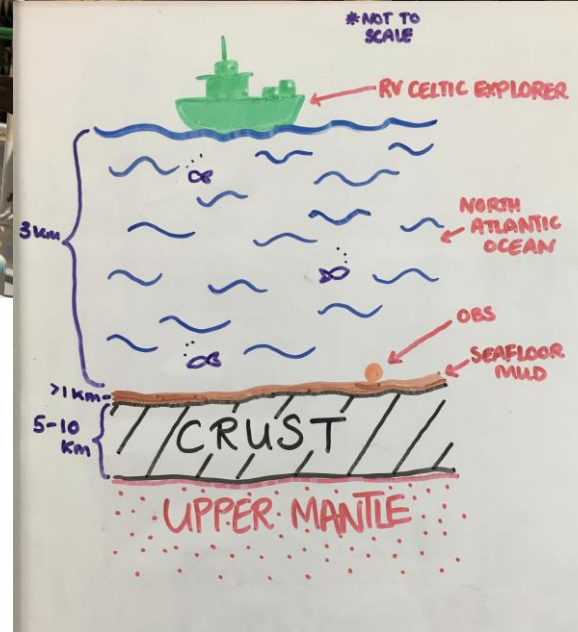 *NOT TO
SCALE
RV CELTIC EXPLORER
3km
NORTH
ATLANTIC
OCEAN
OBS
SEAFLOOR
MUD
>1km
5-10
km
CRUST
UPPER MANTLE